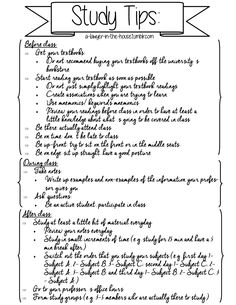 Study Tips:
a-lawyer-in-the-house.tumblr.com
Before class:
Get your textbooks
Do not recommend buying your textbooks off the university s
bookstore
Start reading your textbook as soon as possible
Do not just simply highlight your textbook readings
Create associations when you are trying to learn
Use mnemonics/ keywords mnemonics
Review your readings before class in order to have at least a
little knowledge about what s going to be covered in class
Be there actually attend class
Be on time don t be late to class
Be up-front try to sit on the front or in the middle seats
Be on edge sit up straight have a good posture
During class:
Take notes
Write up examples and non-examples of the information your profes-
sor gives you
Ask questions
Be an active student participate in class
After class:
Study at least a little bit of material everyday
Review your notes everyday
Study in small increments of time (e.g. study for 15 min and have a 5
min break after)
Switch out the order that you study your subjects (e.g. first day 1-
Subject A 1- Subject B 1- Subject C second day 1- Subject C 1-
Subject A 1- Subject B and third day 1- Subject B 1- Subject C 1-
Subject A)
Go to your professor s office hours
Form study groups (e.g. 1-5 members who are actually there to study)